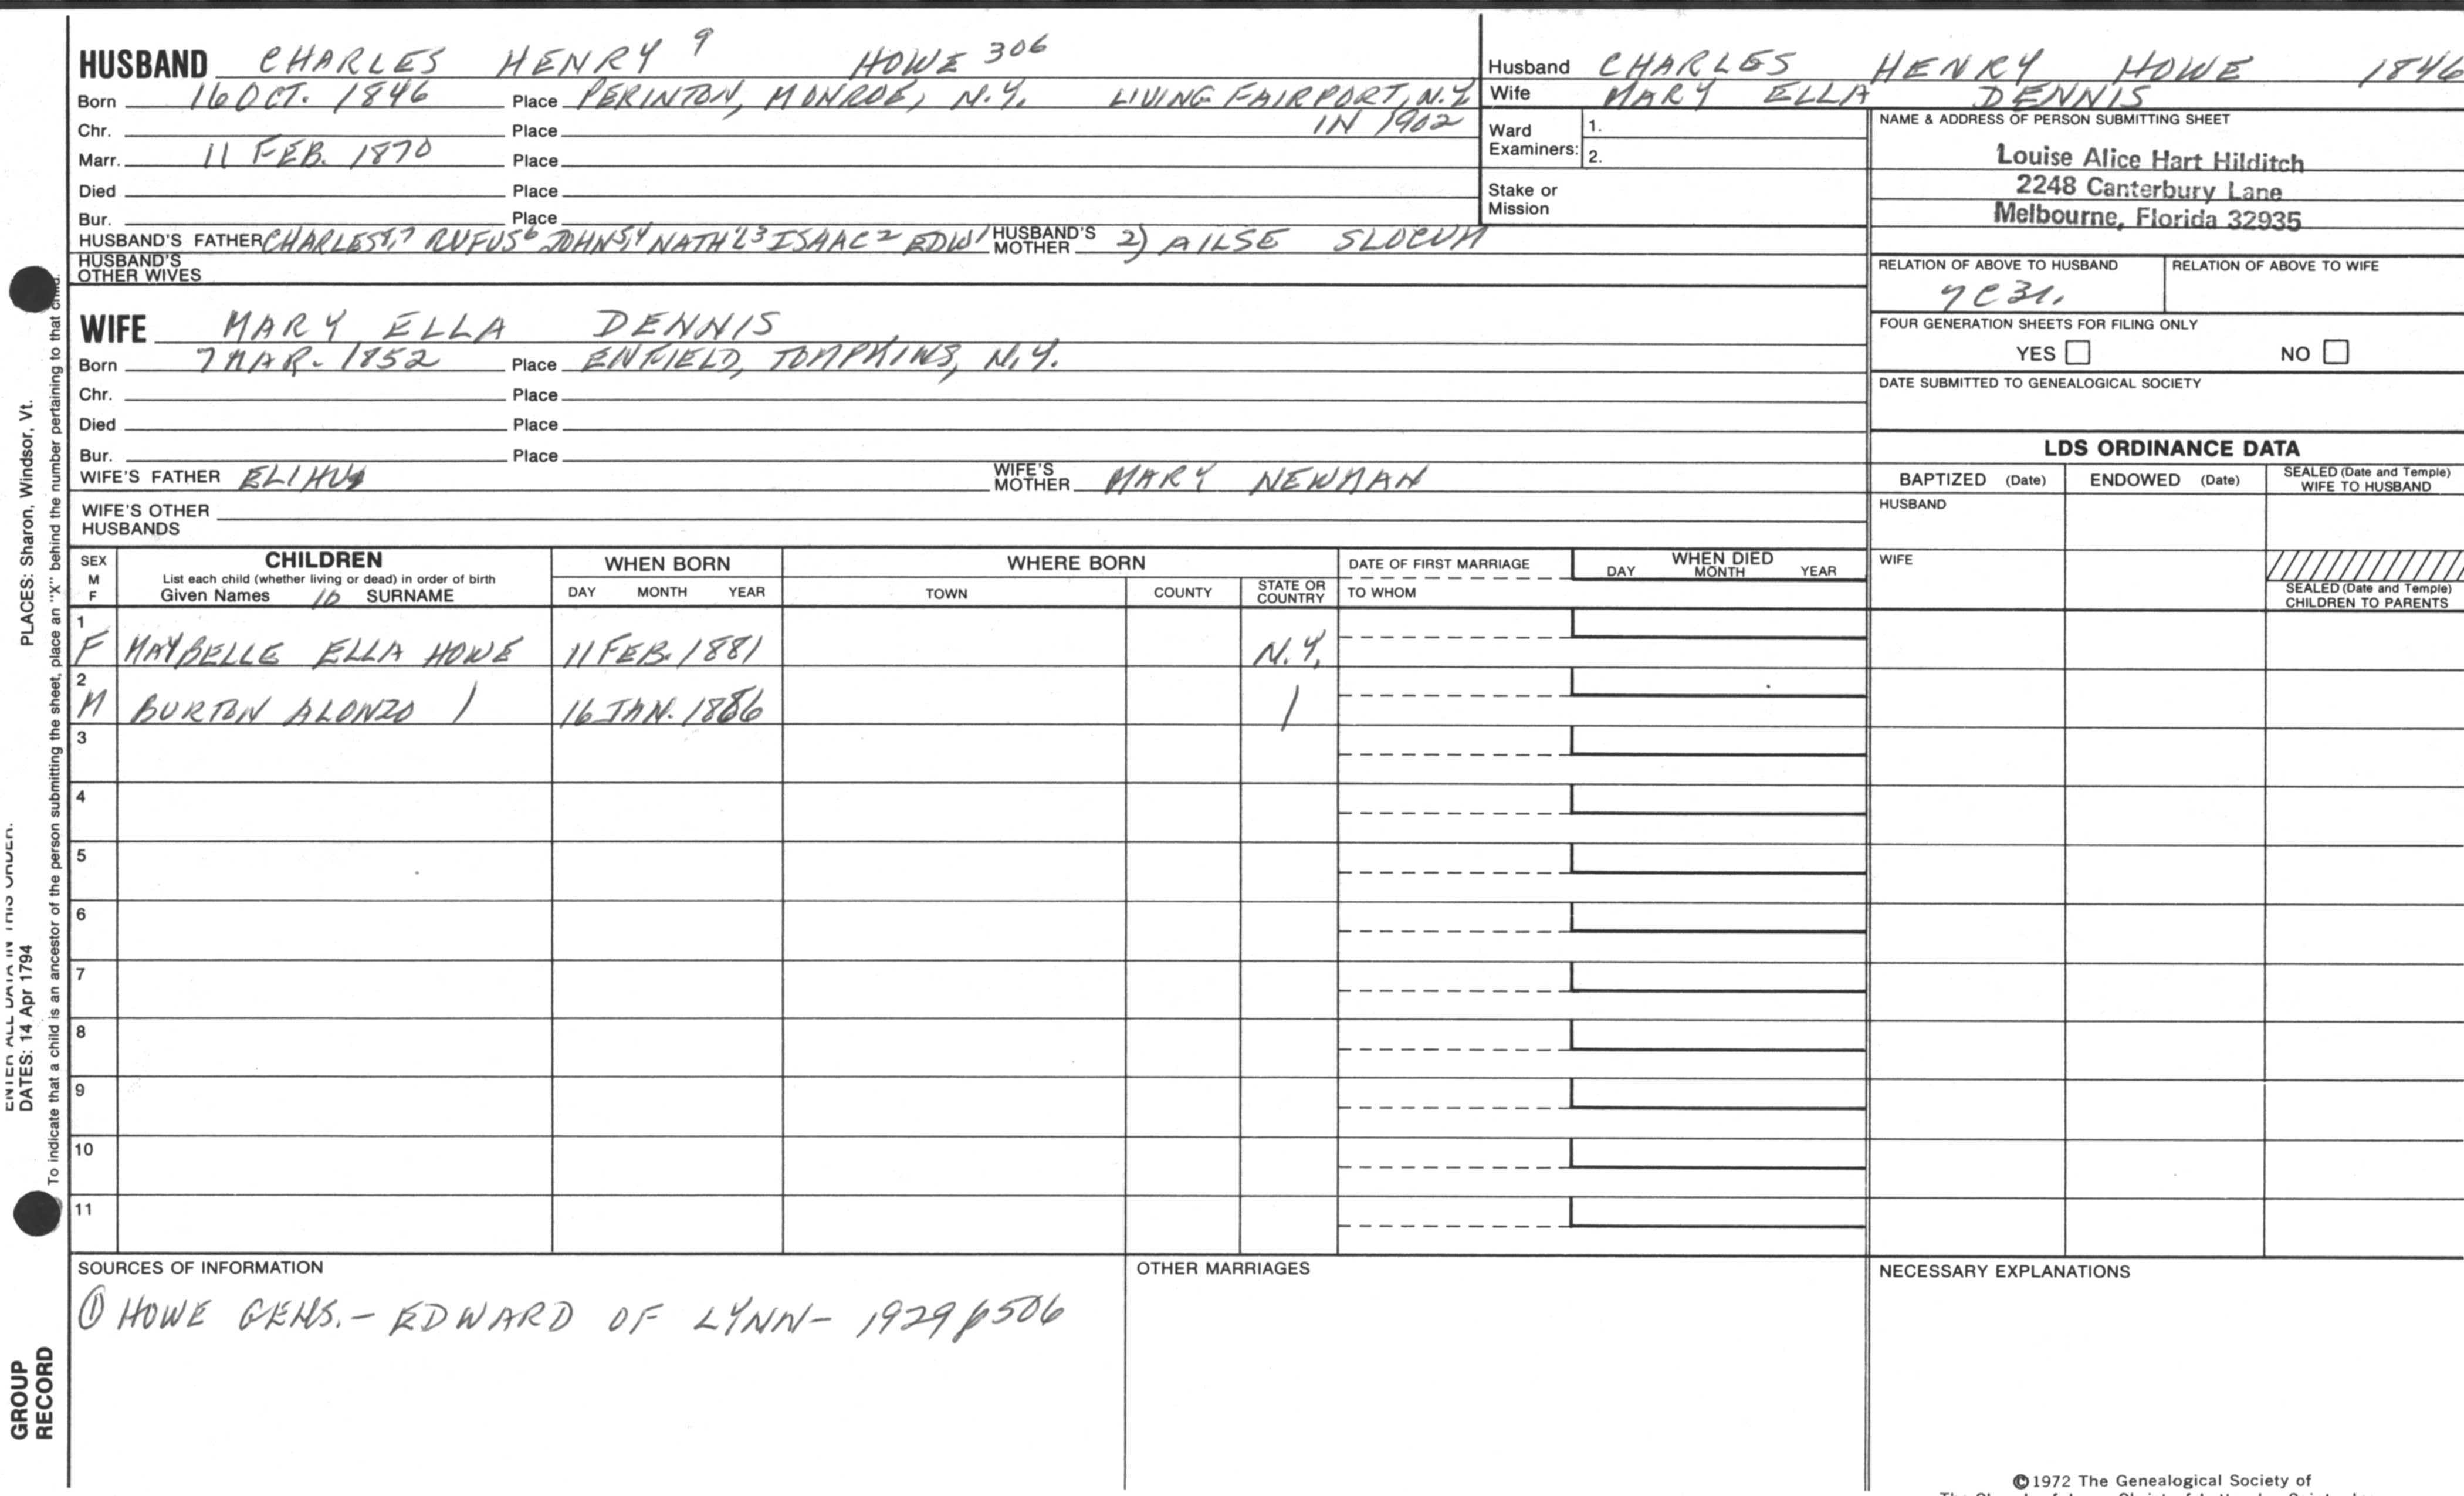 HUSBAND CHARLES HENRY 9 HOWE 306
Born 16 OCT. 1846 Place PERINTON, MONROE, N.Y. LIVING FAIRPORT, N.Y.
Chr. Place IN 1902
Marr. 11 FEB. 1870 Place
Died Place
Bur. Place
HUSBAND'S FATHER CHARLES8,7 RUFUS6 JOHN5,4 NATH'L3 ISAAC2 EDW1 HUSBAND'S MOTHER 2) AILSE SLOCUM
HUSBAND'S OTHER WIVES
WIFE MARY ELLA DENNIS
Born 7 MAR. 1852 Place ENFIELD, TOMPKINS, N.Y.
Chr. Place
Died Place
Bur. Place
WIFE'S FATHER ELIHU WIFE'S MOTHER MARY NEWMAN
WIFE'S OTHER HUSBANDS
Husband CHARLES HENRY HOWE 1846
Wife MARY ELLA DENNIS
Ward Examiners: 1.
2.
Stake or Mission
NAME & ADDRESS OF PERSON SUBMITTING SHEET
Louise Alice Hart Hilditch
2248 Canterbury Lane
Melbourne, Florida 32935
RELATION OF ABOVE TO HUSBAND RELATION OF ABOVE TO WIFE
7C3r.
FOUR GENERATION SHEETS FOR FILING ONLY
YES NO
DATE SUBMITTED TO GENEALOGICAL SOCIETY
LDS ORDINANCE DATA
BAPTIZED (Date) ENDOWED (Date) SEALED (Date and Temple) WIFE TO HUSBAND
HUSBAND
WIFE
SEALED (Date and Temple) CHILDREN TO PARENTS
SEX M F CHILDREN WHEN BORN WHERE BORN DATE OF FIRST MARRIAGE WHEN DIED
List each child (whether living or dead) in order of birth
Given Names 10 SURNAME DAY MONTH YEAR TOWN COUNTY STATE OR COUNTRY TO WHOM DAY MONTH YEAR
1
F MAYBELLE ELLA HOWE 11 FEB. 1881 N.Y.
2
M BURTON ALONZO | 16 JAN. 1886 |
3
4
5
6
7
8
9
10
11
SOURCES OF INFORMATION
① HOWE GENS. - EDWARD OF LYNN - 1929 p506
OTHER MARRIAGES
NECESSARY EXPLANATIONS
©1972 The Genealogical Society of
PLACES: Sharon, Windsor, Vt.
ENTER ALL DATA IN THIS ORDER.
DATES: 14 Apr 1794
To indicate that a child is an ancestor of the person submitting the sheet, place an "X" behind the number pertaining to that child.
GROUP
RECORD